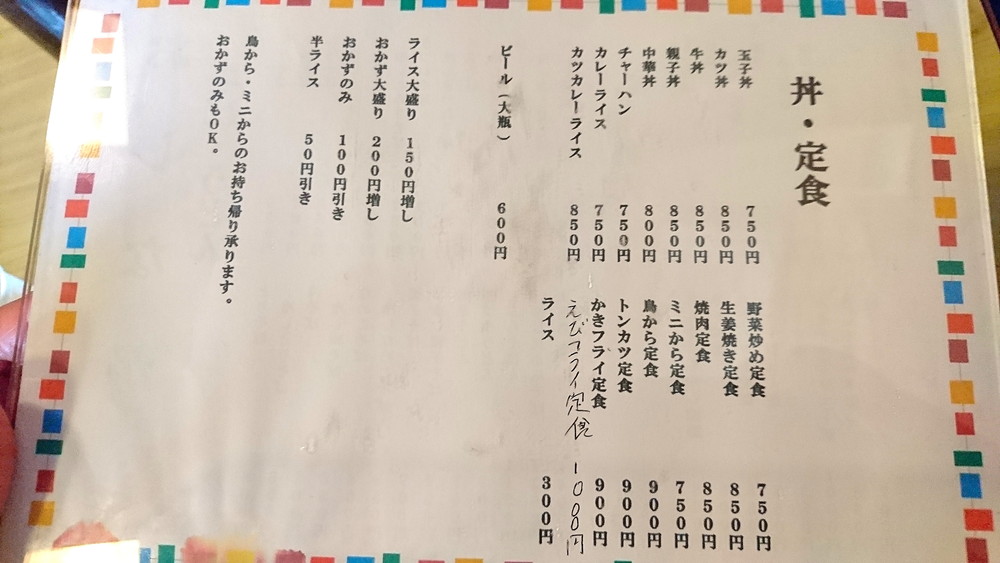 丼・定食
玉子丼 750円
カツ丼 850円
牛丼 850円
親子丼 850円
中華丼 800円
チャーハン 750円
カレーライス 750円
カツカレーライス 850円
野菜炒め定食 750円
生姜焼き定食 850円
焼肉定食 850円
ミニから定食 750円
鳥から定食 900円
トンカツ定食 900円
かきフライ定食 900円
えびフライ定食 1000円
ライス 300円
ビール（大瓶） 600円
ライス大盛り 150円増し
おかず大盛り 200円増し
おかずのみ 100円引き
半ライス 50円引き
鳥から・ミニからのお持ち帰り承ります。
おかずのみもOK。